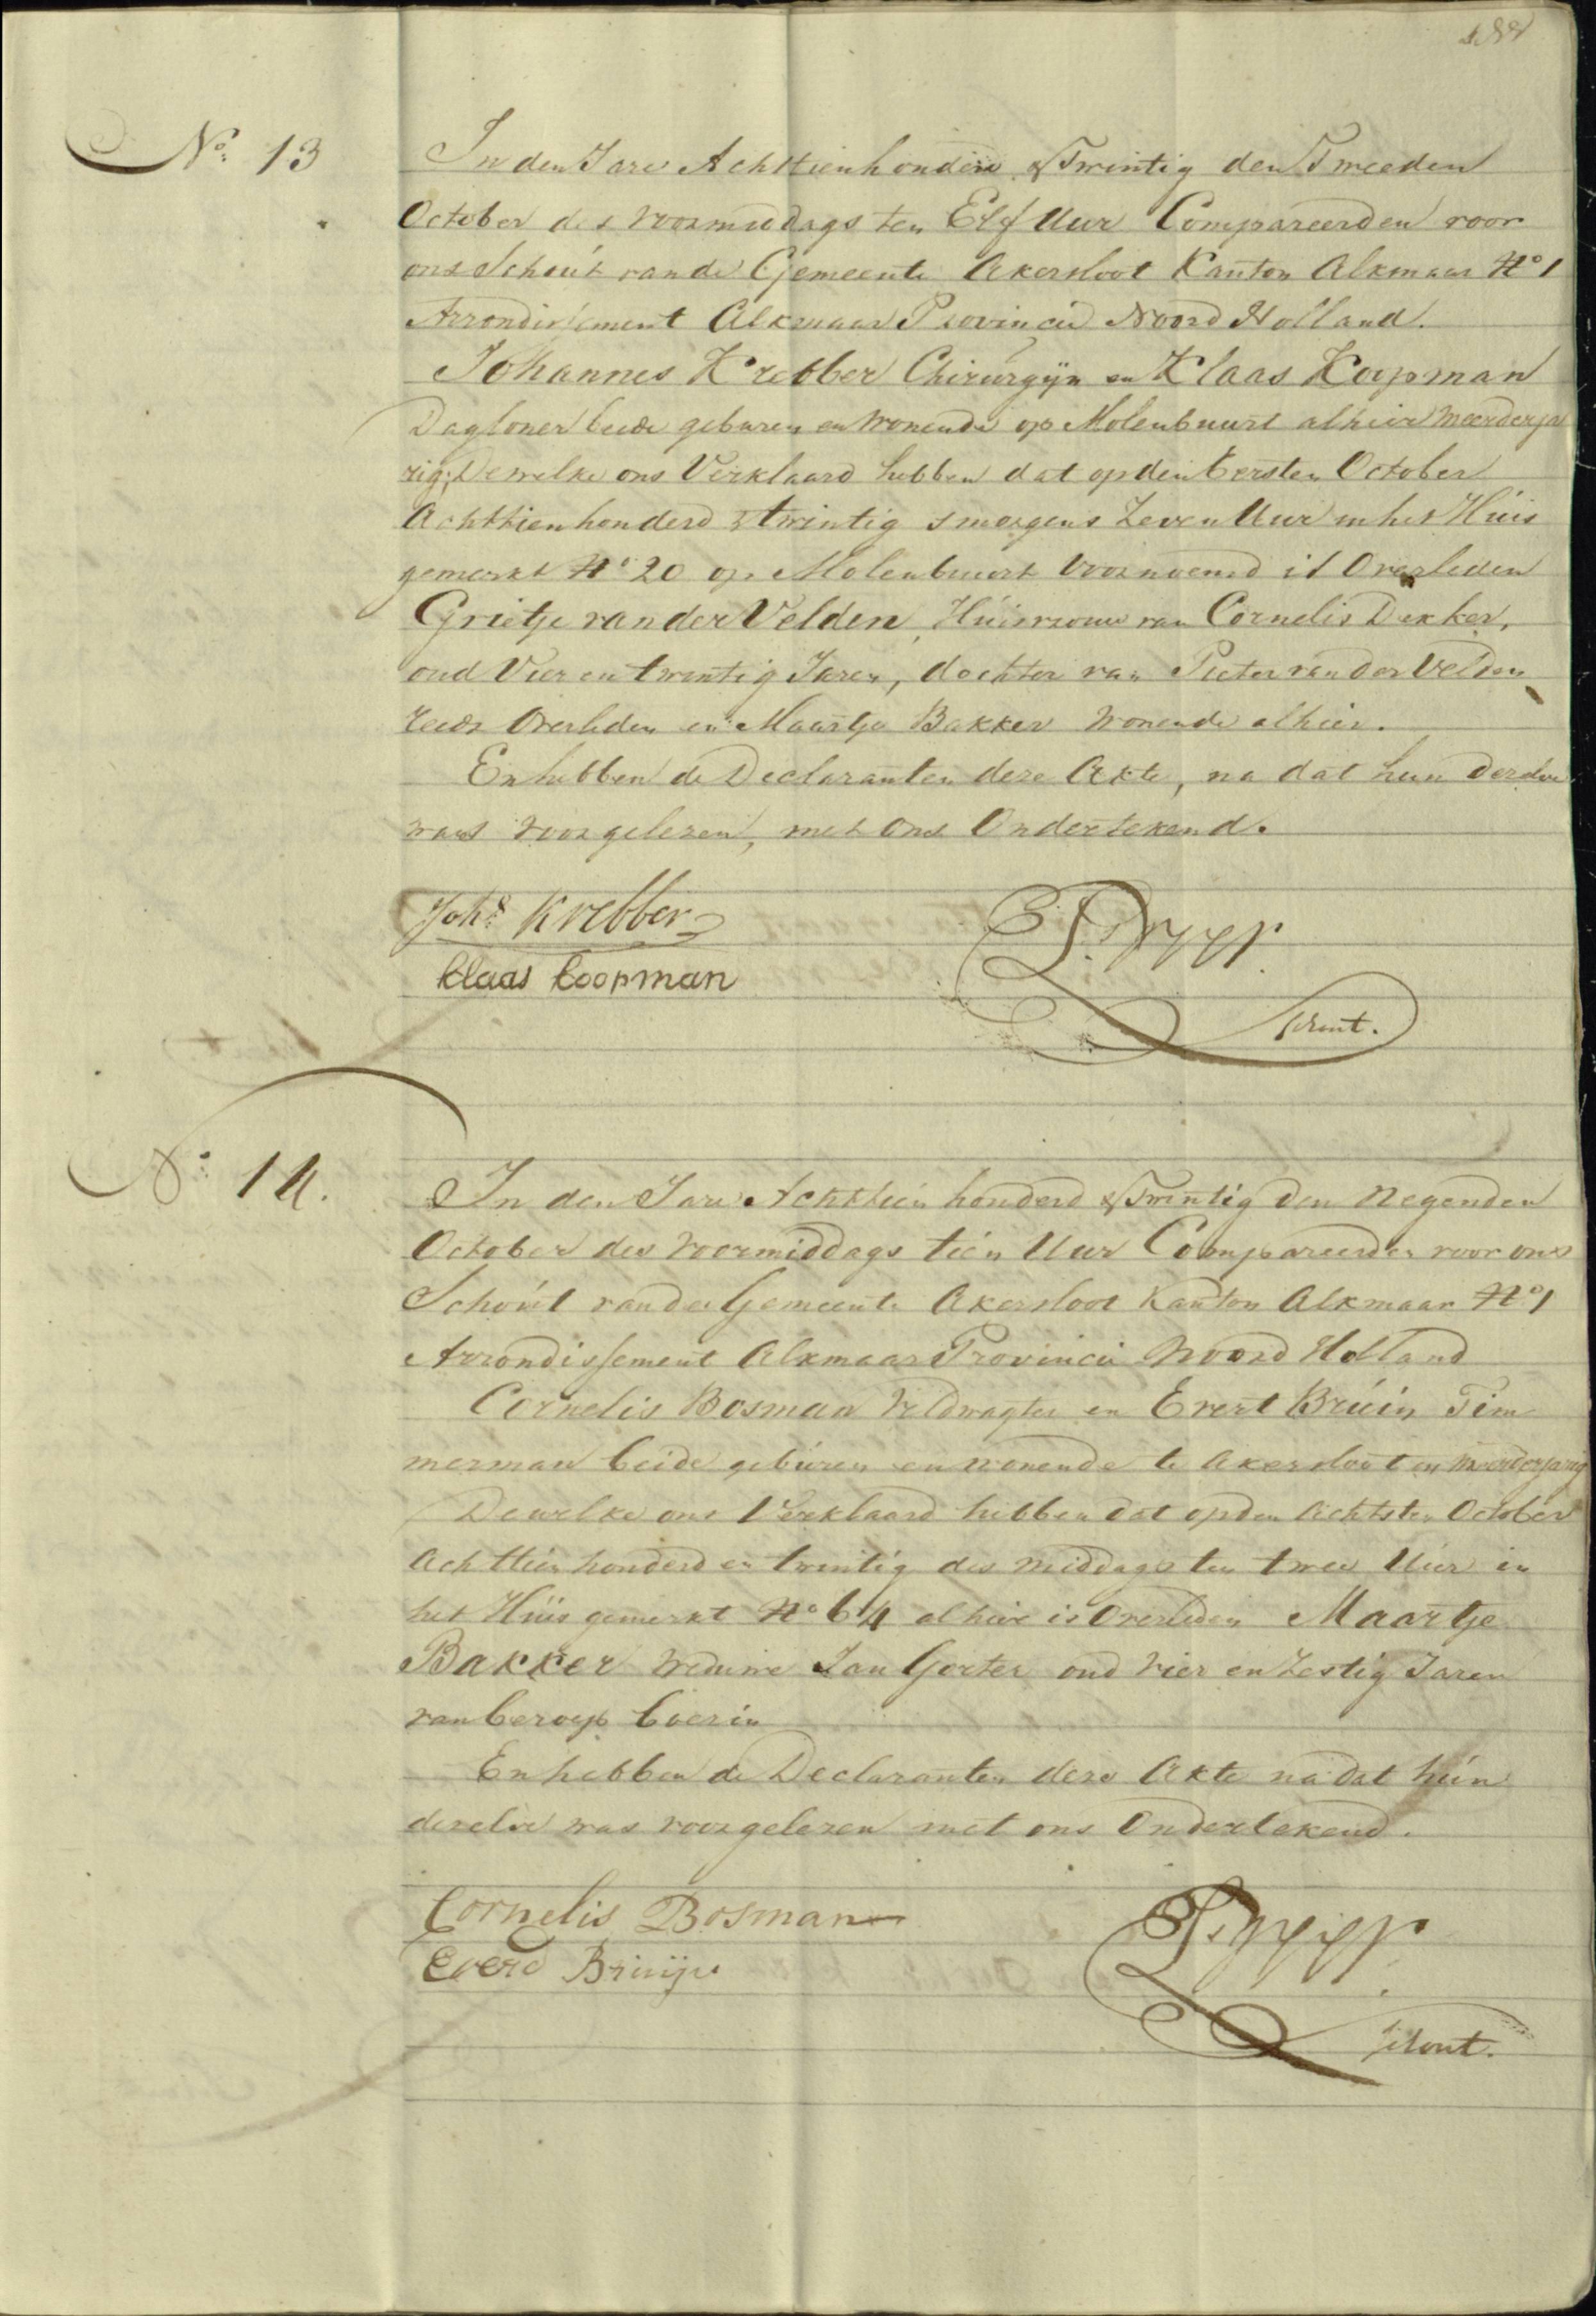 No. 13
In den Jare Achttienhonderd & Twintig den Tweeden
October des voormiddags ten Elf Uur Compareerden voor
ons Schout van de Gemeente Akersloot Kanton Alkmaar No 1
Arrondissement Alkmaar Provincie Noord Holland.
Johannes Krebber Chirurgijn en Klaas Koopman
Dagloner beide geburen en wonende op Molenbuurt alhier meerderja
rig, Dewelke ons Verklaard hebben dat op den Eersten October
Achttienhonderd & twintig smorgens Zeven Uur in het Huis
gemerkt No 20 op Molenbuurt voornoemd is Overleden
Grietje van der Velden, Huisvrouw van Cornelis Dekker,
oud Vier en twintig Jaren, dochter van Pieter van der Velden
reeds Overleden en Maartje Bakker wonende alhier.
En hebben de Declaranten deze Akte, na dat hun dezelve
was voorgelezen, met Ons Ondertekend.
Johs Krebber
Klaas Koopman
Schout.
No. 14.
In den Jare Achttien honderd & Twintig den Negenden
October des voormiddags tien Uur Compareerden voor ons
Schout van de Gemeente Akersloot Kanton Alkmaar No 1
Arrondissement Alkmaar Provincie Noord Holland
Cornelis Bosman Veldwagter en Evert Bruin Tim
merman beide geburen en wonende te Akersloot en meerderjarig
Dewelke ons Verklaard hebben dat op den Achtsten October
Achttien honderd en twintig des middags ten twee Uur in
het Huis gemerkt No 64 alhier is Overleden Maartje
Bakker Weduwe Jan Gorter oud vier en Zestig Jaren
van beroep boerin
En hebben de Declaranten deze Akte na dat hun
dezelve was voorgelezen met ons Ondertekend.
Cornelis Bosman
Everd Bruijn
Schout.